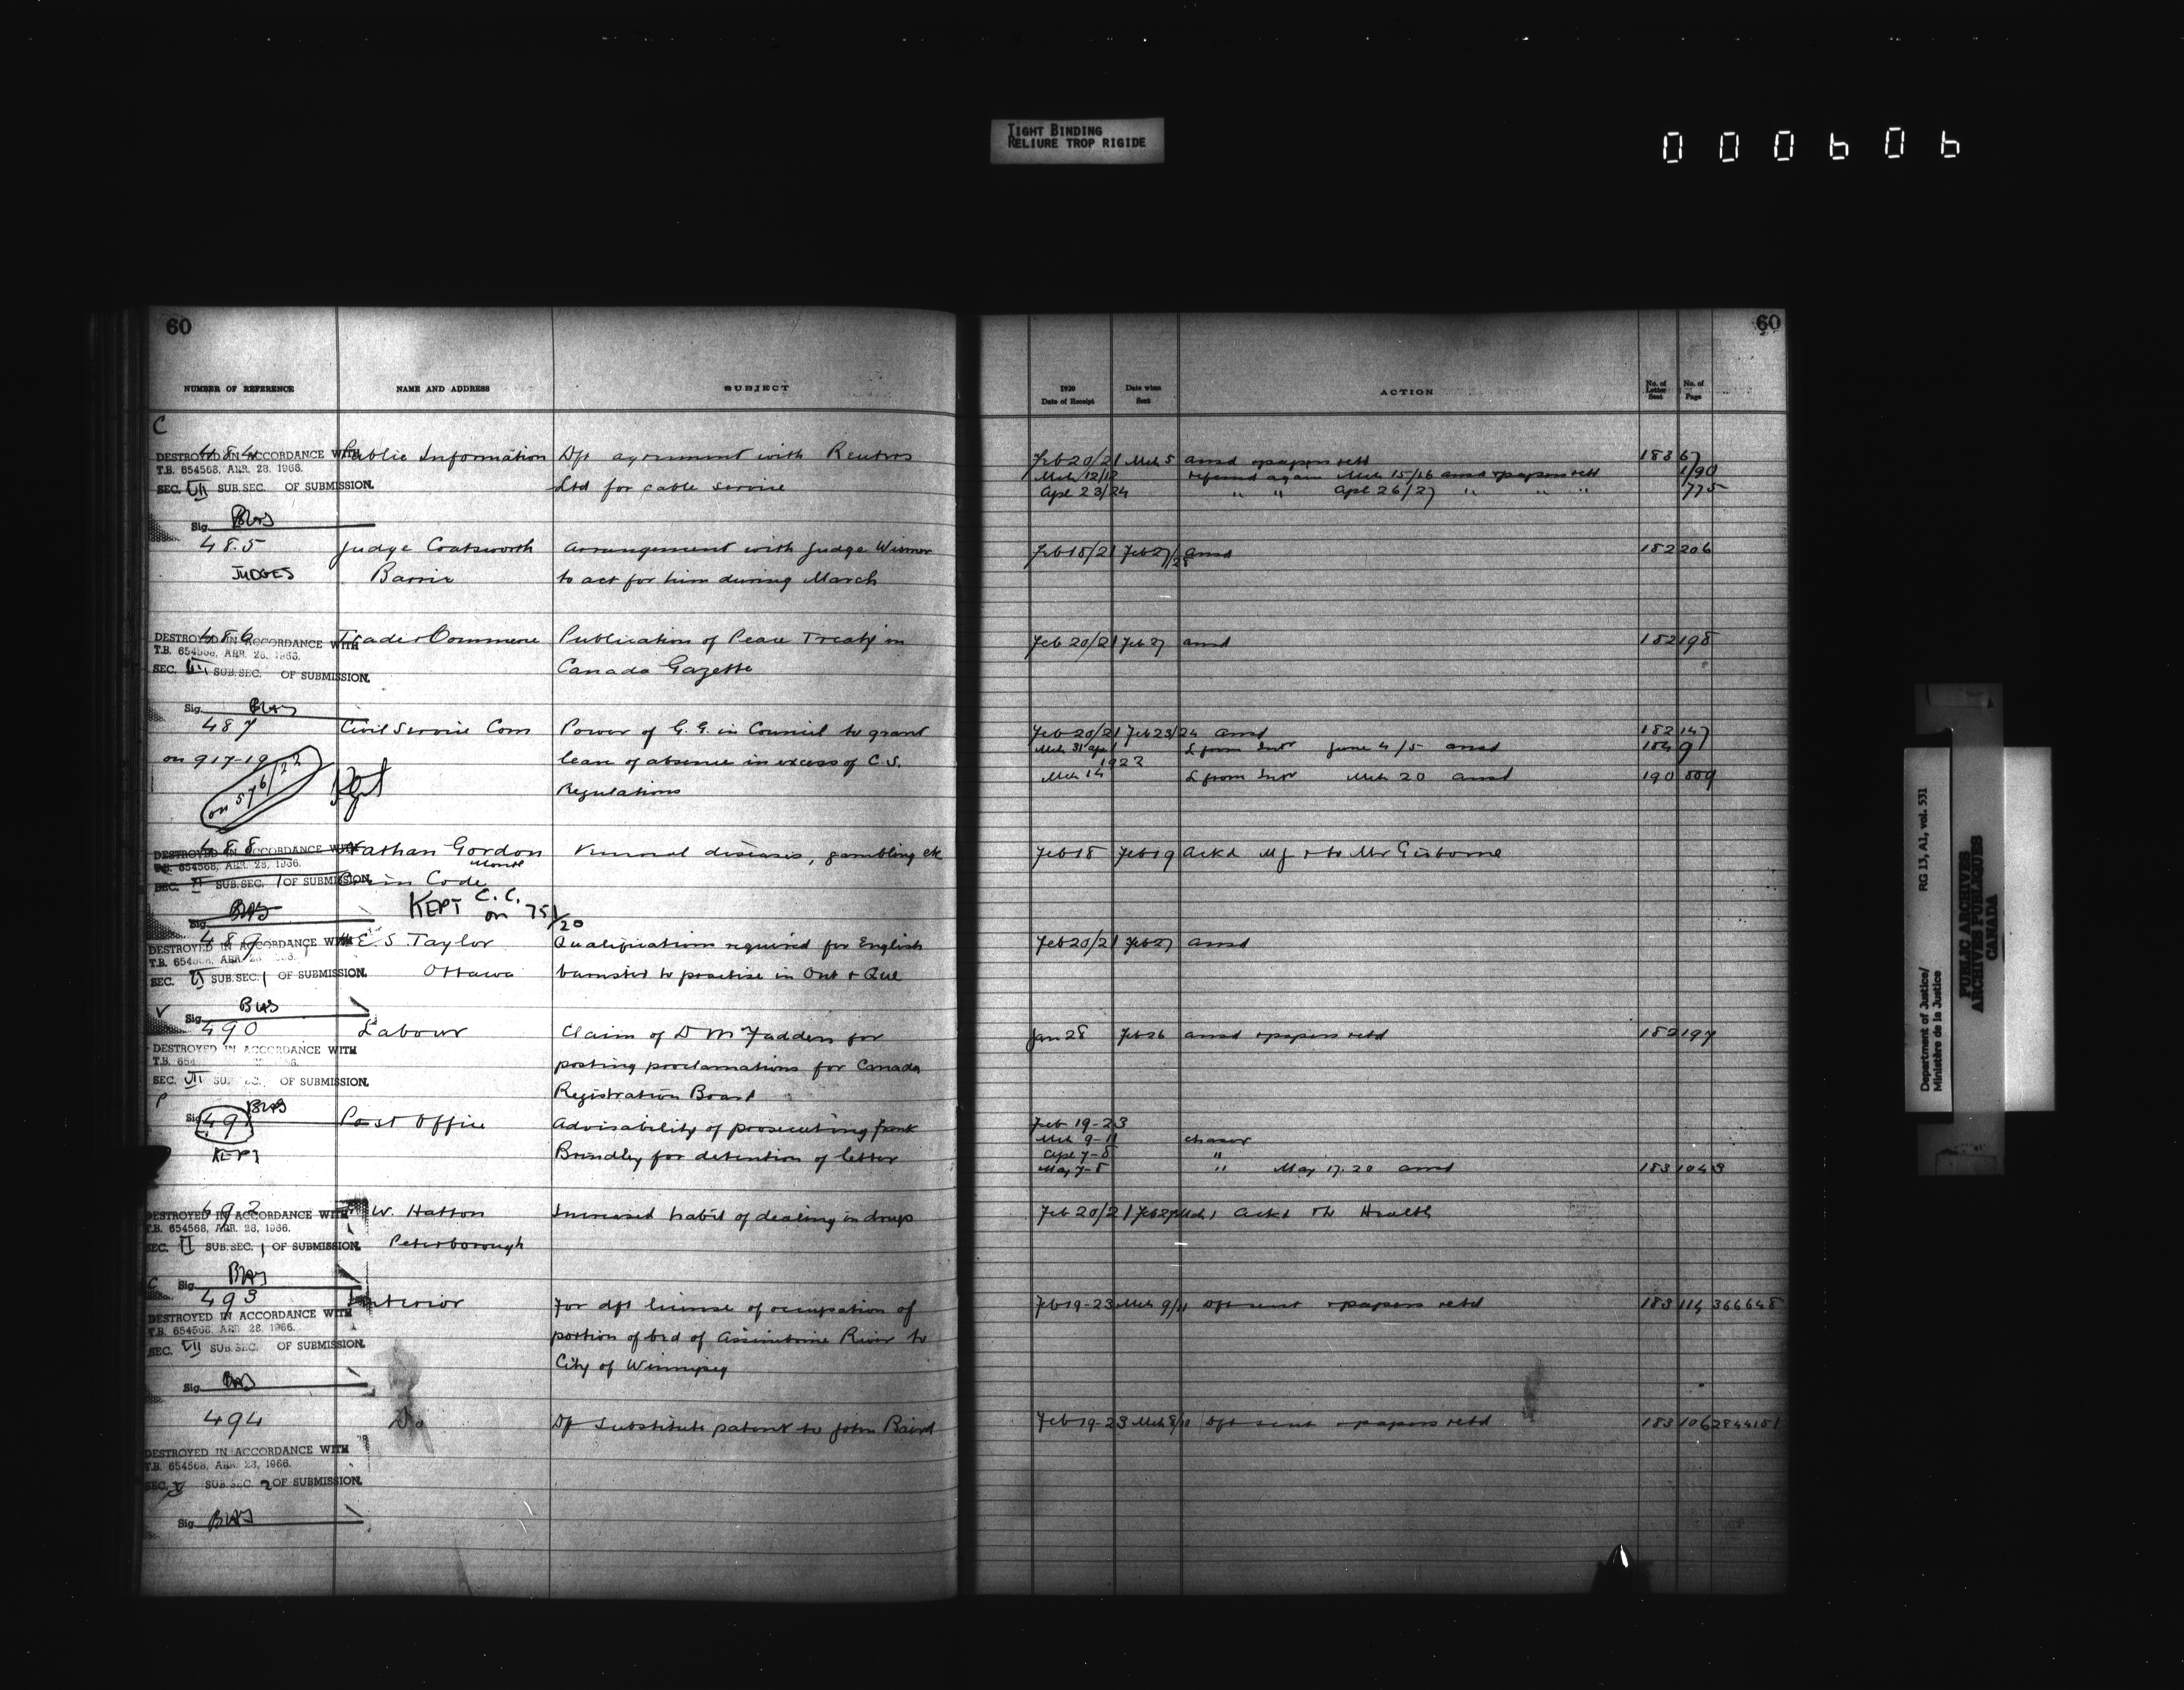 TIGHT BINDING
RELIURE TROP RIGIDE
000606
60
NUMBER OF REFERENCE NAME AND ADDRESS SUBJECT
C
484 Public Information Dft agreement with Reuters
DESTROYED IN ACCORDANCE WITH
T.B. 654568, APR. 28, 1966.
SEC. VII SUB.SEC. OF SUBMISSION.
Ltd for cable service
Sig.
485 Judge Coatsworth Arrangement with Judge Wismer
JUDGES Barrie to act for him during March
486 Trade & Commerce Publication of Peace Treaty in
DESTROYED IN ACCORDANCE WITH
T.B. 654568, APR. 28, 1966.
SEC. VII SUB.SEC. OF SUBMISSION.
Canada Gazette
Sig.
487 Civil Service Com Power of G.G. in Council to grant
on 917-19 leave of absence in excess of C.S.
on 576/22 Kept Regulations
488 Nathan Gordon Venereal diseases, gambling etc
Montl
DESTROYED IN ACCORDANCE WITH
T.B. 654568, APR. 28, 1966.
SEC. VI SUB.SEC. 1 OF SUBMISSION.
Crim Code
KEPT C.C.
on 751/20
Sig.
489 E S Taylor Qualifications required for English
DESTROYED IN ACCORDANCE WITH
T.B. 654568, APR. 28, 1966.
Ottawa barrister to practise in Ont & Que
SEC. VI SUB.SEC. 1 OF SUBMISSION.
Sig.
490 Labour Claim of D McFadden for
DESTROYED IN ACCORDANCE WITH
posting proclamations for Canada
SEC. VII SUB.SEC. OF SUBMISSION.
Registration Board
P
Sig.
491 Post Office Advisability of prosecuting Frank
KEPT Brindley for detention of letter
492 W. Hatton Increased habit of dealing in drugs
DESTROYED IN ACCORDANCE WITH
T.B. 654568, APR. 28, 1966.
SEC. II SUB.SEC. 1 OF SUBMISSION.
Peterborough
C
Sig.
493 Interior For dft license of occupation of
DESTROYED IN ACCORDANCE WITH
T.B. 654568, APR. 28, 1966.
portion of bed of Assiniboine River to
SEC. VII SUB.SEC. OF SUBMISSION.
City of Winnipeg
Sig.
494 Do Dft substitute patent to John Baird
DESTROYED IN ACCORDANCE WITH
T.B. 654568, APR. 28, 1966.
SEC. V SUB.SEC. 2 OF SUBMISSION.
Sig.
60
1920
Date of Receipt Date when Sent ACTION No. of Letter Sent No. of Page
Feb 20/21 Mch 5 ansd & papers retd 183 67
Mch 12/12 referred again Mch 15/16 ansd & papers retd 1/90
Apl 23/24 " " Apl 26/27 " " " 775
Feb 18/21 Feb 27/28 ansd 182 206
Feb 20/21 Feb 27 ansd 182 198
Feb 20/21 Feb 23/24 ansd 182 147
Mch 31 Apl 1 L from Intr June 4/5 ansd 184 91
1922
Mch 14 L from Intr Mch 20 ansd 190 809
Feb 18 Feb 19 Ackd Mj & to Mr Gisborne
Feb 20/21 Feb 27 ansd
Jan 28 Feb 26 ansd & papers retd 182 197
Feb 19-23
Mch 9-11 chaser
Apl 7-8 "
May 7-8 " May 17.20 ansd 183 1043
Feb 20/21 Feb 27 Mch 1 Ackd & to Health
Feb 19-23 Mch 9/11 Dft sent & papers retd 183 114 366648
Feb 19-23 Mch 8/10 Dft sent & papers retd 183 106 2844181
Department of Justice/ RG 13, A1, vol. 531
Ministère de la Justice
PUBLIC ARCHIVES
ARCHIVES PUBLIQUES
CANADA